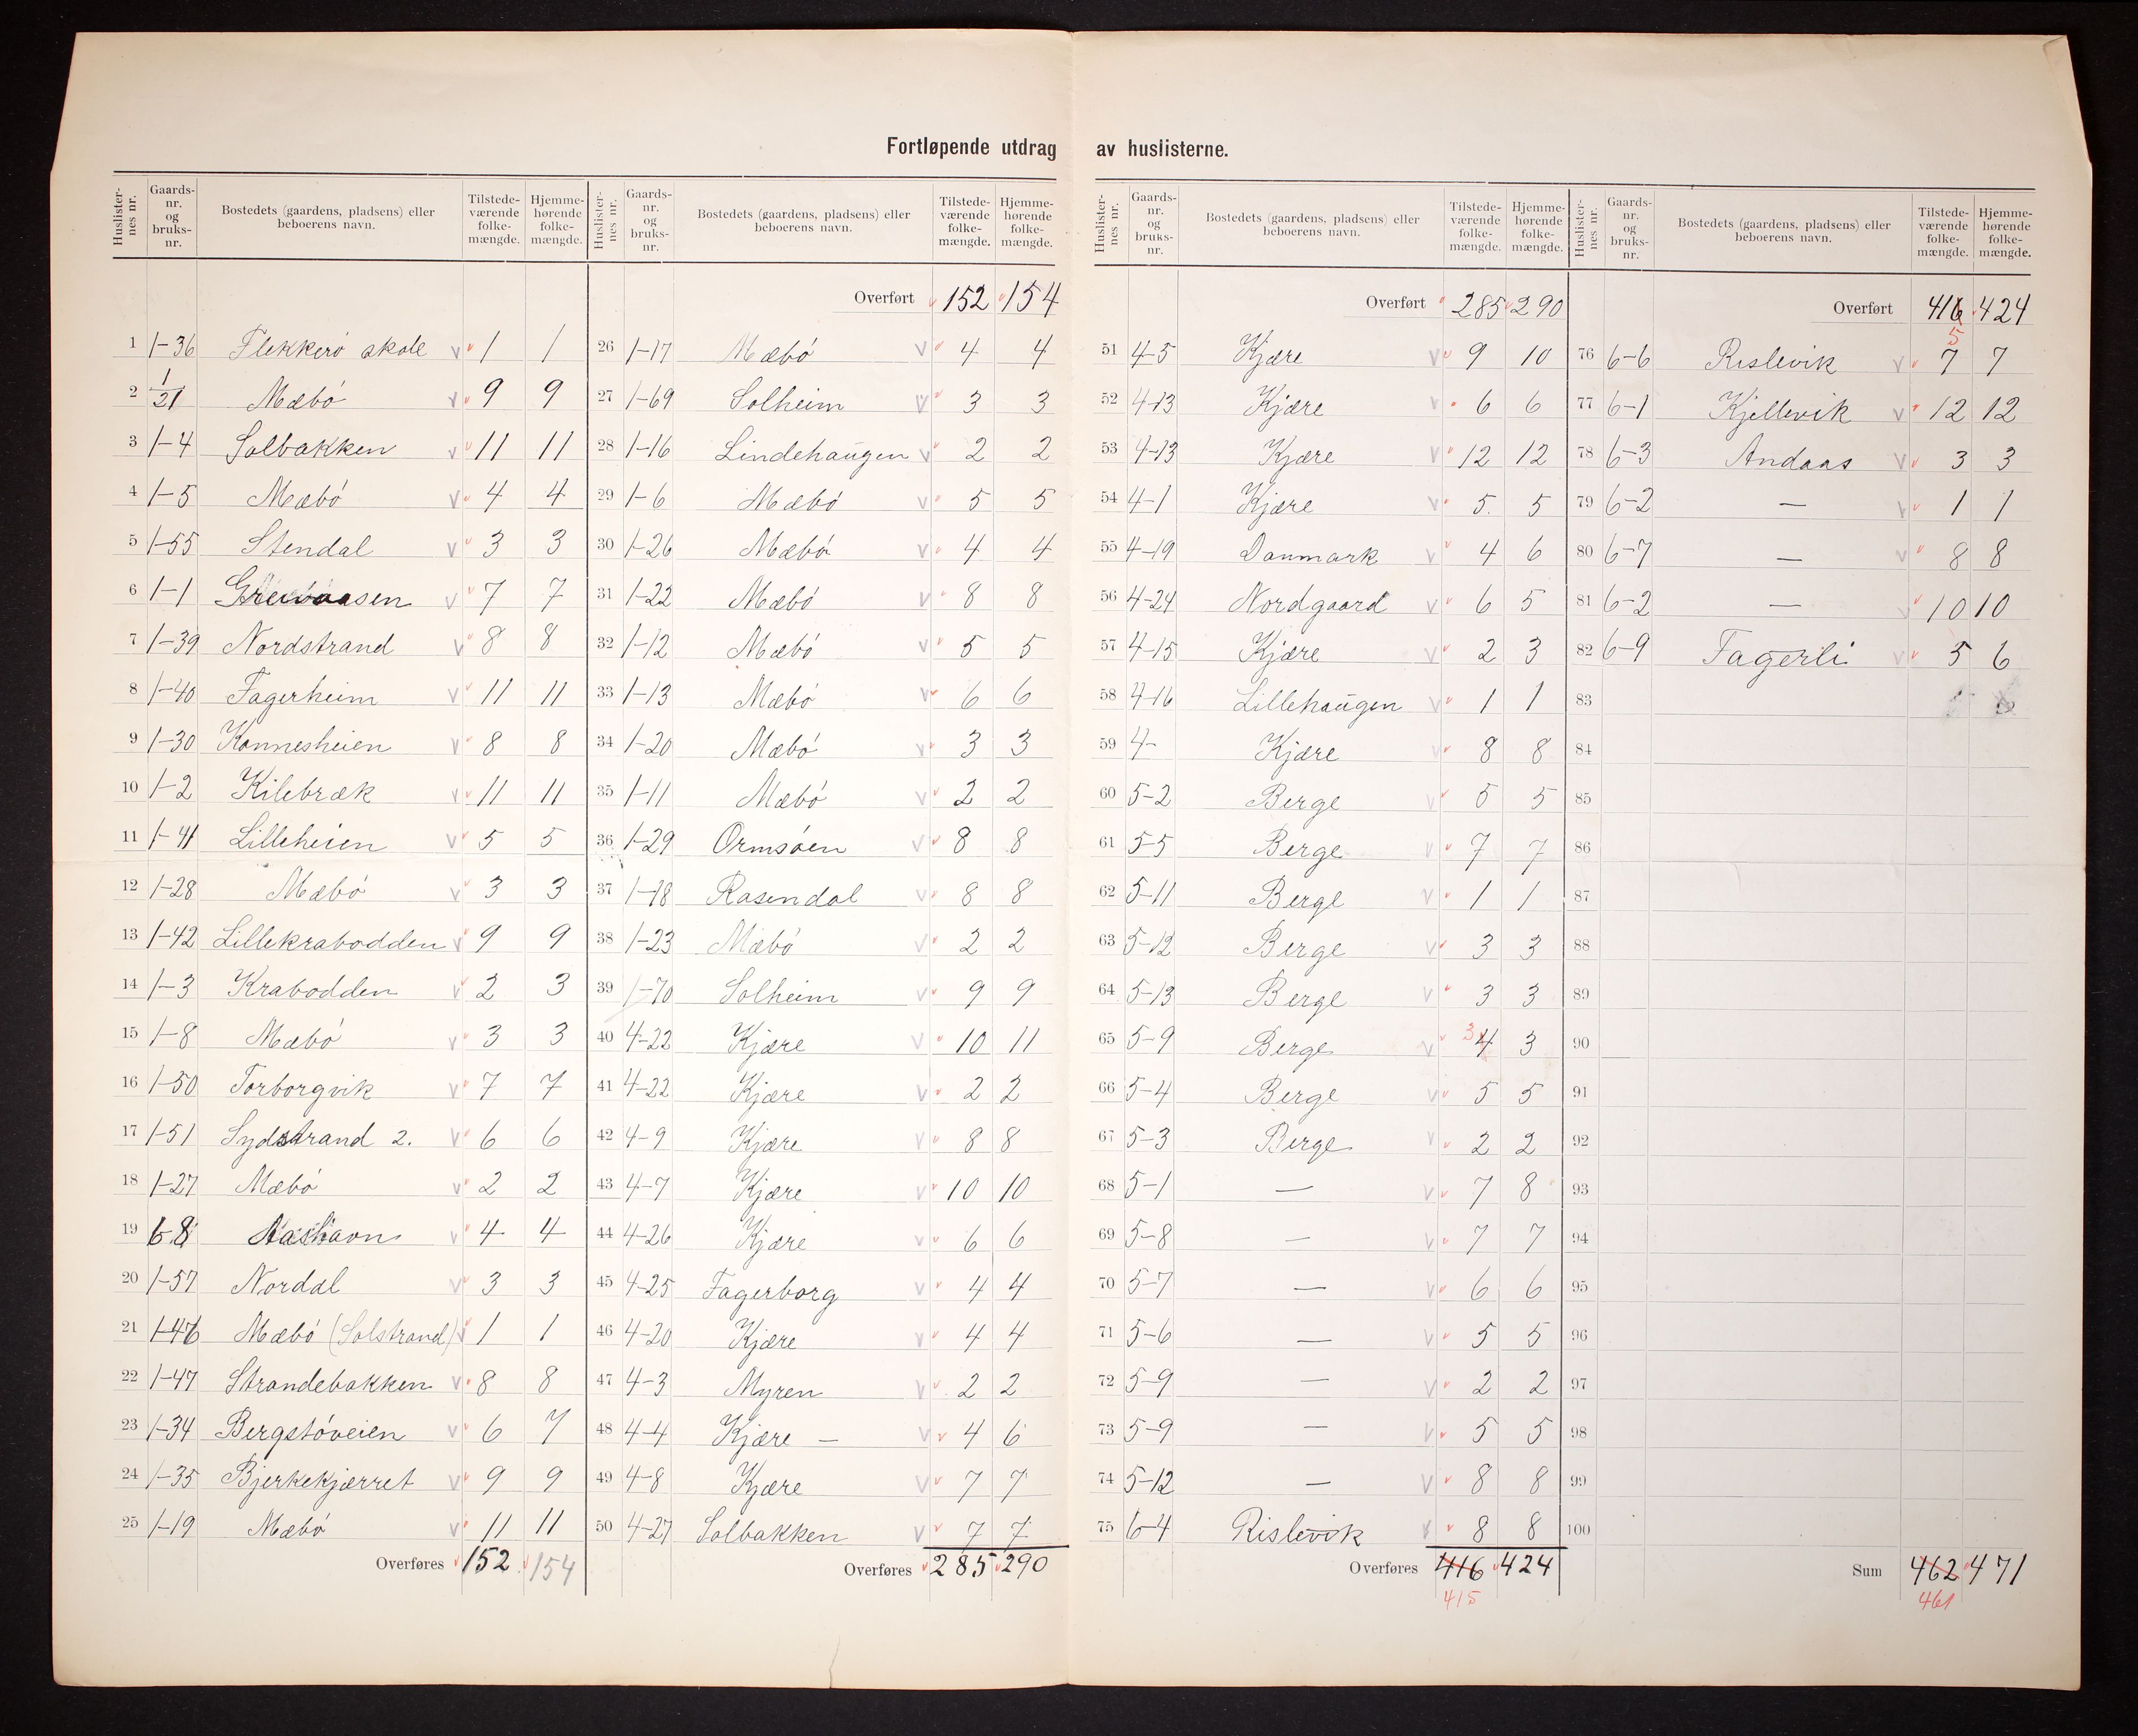 Fortløpende utdrag av huslisterne.
Huslister-nes nr. Gaards-nr. og bruks-nr. Bostedets (gaardens, pladsens) eller beboerens navn. Tilstede-værende folke-mængde. Hjemme-hørende folke-mængde.
1 1-36 Flekkerø skole v 1 1
2 1/21 Mæbø v 9 9
3 1-4 Solbakken v 11 11
4 1-5 Mæbø v 4 4
5 1-55 Stendal v 3 3
6 1-1 v 7 7
7 1-39 Nordstrand v 8 8
8 1-40 Fagerheim v 11 11
9 1-30 Konnesheien v 8 8
10 1-2 Kilebræk v 11 11
11 1-41 Lilleheien v 5 5
12 1-28 Mæbø v 3 3
13 1-42 Lillekrabodden v 9 9
14 1-3 Krabodden v 2 3
15 1-8 Mæbø v 3 3
16 1-50 Torborgvik v 7 7
17 1-51 Sydstrand 2. v 6 6
18 1-27 Mæbø v 2 2
19 6-8 v 4 4
20 1-57 Nordal v 3 3
21 1-46 Mæbø (Solstrand) v 1 1
22 1-47 Strandebakken v 8 8
23 1-34 Bergstøveien v 6 7
24 1-35 Bjerkekjærret v 9 9
25 1-19 Mæbø v 11 11
Overføres 152 154
Huslister-nes nr. Gaards-nr. og bruks-nr. Bostedets (gaardens, pladsens) eller beboerens navn. Tilstede-værende folke-mængde. Hjemme-hørende folke-mængde.
Overført 152 154
26 1-17 Mæbø v 4 4
27 1-69 Solheim v 3 3
28 1-16 Lindehaugen v 2 2
29 1-6 Mæbø v 5 5
30 1-26 Mæbø v 4 4
31 1-22 Mæbø v 8 8
32 1-12 Mæbø v 5 5
33 1-13 Mæbø v 6 6
34 1-20 Mæbø v 3 3
35 1-11 Mæbø v 2 2
36 1-29 Ormsøen v 8 8
37 1-18 Rosendal v 8 8
38 1-23 Mæbø v 2 2
39 1-70 Solheim v 9 9
40 4-22 Kjære v 10 11
41 4-22 Kjære v 2 2
42 4-9 Kjære v 8 8
43 4-7 Kjære v 10 10
44 4-26 Kjære v 6 6
45 4-25 Fagerborg v 4 4
46 4-20 Kjære v 4 4
47 4-3 Myren v 2 2
48 4-4 Kjære — v 4 6
49 4-8 Kjære v 7 7
50 4-27 Solbakken v 7 7
Overføres 285 290
Huslister-nes nr. Gaards-nr. og bruks-nr. Bostedets (gaardens, pladsens) eller beboerens navn. Tilstede-værende folke-mængde. Hjemme-hørende folke-mængde.
Overført 285 290
51 4-5 Kjære v 9 10
52 4-13 Kjære v 6 6
53 4-13 Kjære v 12 12
54 4-1 Kjære v 5 5
55 4-19 Danmark v 4 6
56 4-24 Nordgaard v 6 5
57 4-15 Kjære v 2 3
58 4-16 Lillehaugen v 1 1
59 4- Kjære v 8 8
60 5-2 Berge v 5 5
61 5-5 Berge v 7 7
62 5-11 Berge v 1 1
63 5-12 Berge v 3 3
64 5-13 Berge v 3 3
65 5-9 Berge v 3 4 3
66 5-4 Berge v 5 5
67 5-3 Berge v 2 2
68 5-1 — v 7 8
69 5-8 — v 7 7
70 5-7 — v 6 6
71 5-6 — v 5 5
72 5-9 — v 2 2
73 5-9 — v 5 5
74 5-12 — v 8 8
75 6-4 Rislevik v 8 8
Overføres 416 424
415
Huslister-nes nr. Gaards-nr. og bruks-nr. Bostedets (gaardens, pladsens) eller beboerens navn. Tilstede-værende folke-mængde. Hjemme-hørende folke-mængde.
Overført 416 424
5
76 6-6 Rislevik v 7 7
77 6-1 Kjellevik v 12 12
78 6-3 Andaas v 3 3
79 6-2 — v 1 1
80 6-7 — v 8 8
81 6-2 — v 10 10
82 6-9 Fagerli v 5 6
83
84
85
86
87
88
89
90
91
92
93
94
95
96
97
98
99
100
Sum 462 471
461